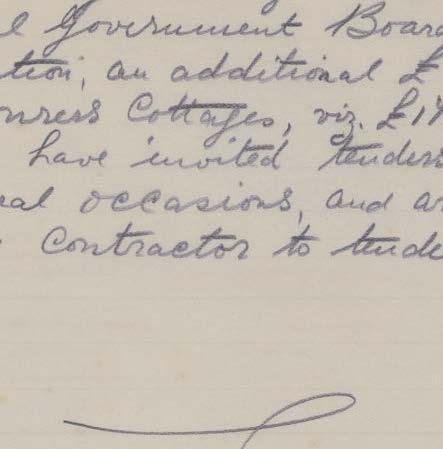 l Government Board
tion, an additional £
onress Cottages, viz. £17
have invited tenders
ral occasions, and ar
Contractor to tende